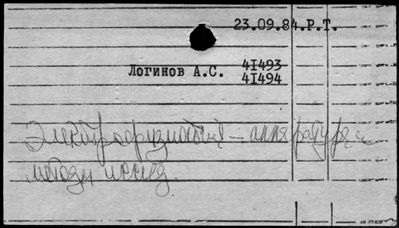 23.09.84.Р.Т.
Логинов А.С. 4I493
4I494
Электрофизиология – аппаратура и
методы исслед.